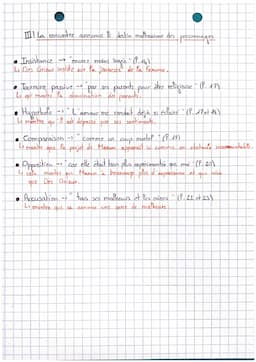 III) La rencontre annonce le destin malheureux des personnages
• Insistance → "encore moins âgée" (l. 14)
↳ Des Grieux insiste sur la jeunesse de la femme.
• Tournure passive → "par ses parents pour être religieuse" (l. 17)
↳ qui montre la domination des parents.
• Hyperbole → "L'amour me rendait déjà si éclairé" (l. 17 et 18)
↳ montre qu'il est dépassé par ses sentiments.
• Comparaison → "comme un coup mortel" (l. 19)
↳ montre que le projet de Manon apparaît ici comme un obstacle insurmontable.
• Opposition → "car elle était bien plus expérimentée que moi" (l. 20)
↳ cela montre que Manon a beaucoup plus d'expérience et que
que Des Grieux.
• Accusation → "tous ses malheurs et les miens" (l. 22 et 23)
↳ montre qui va amener une série de malheurs.